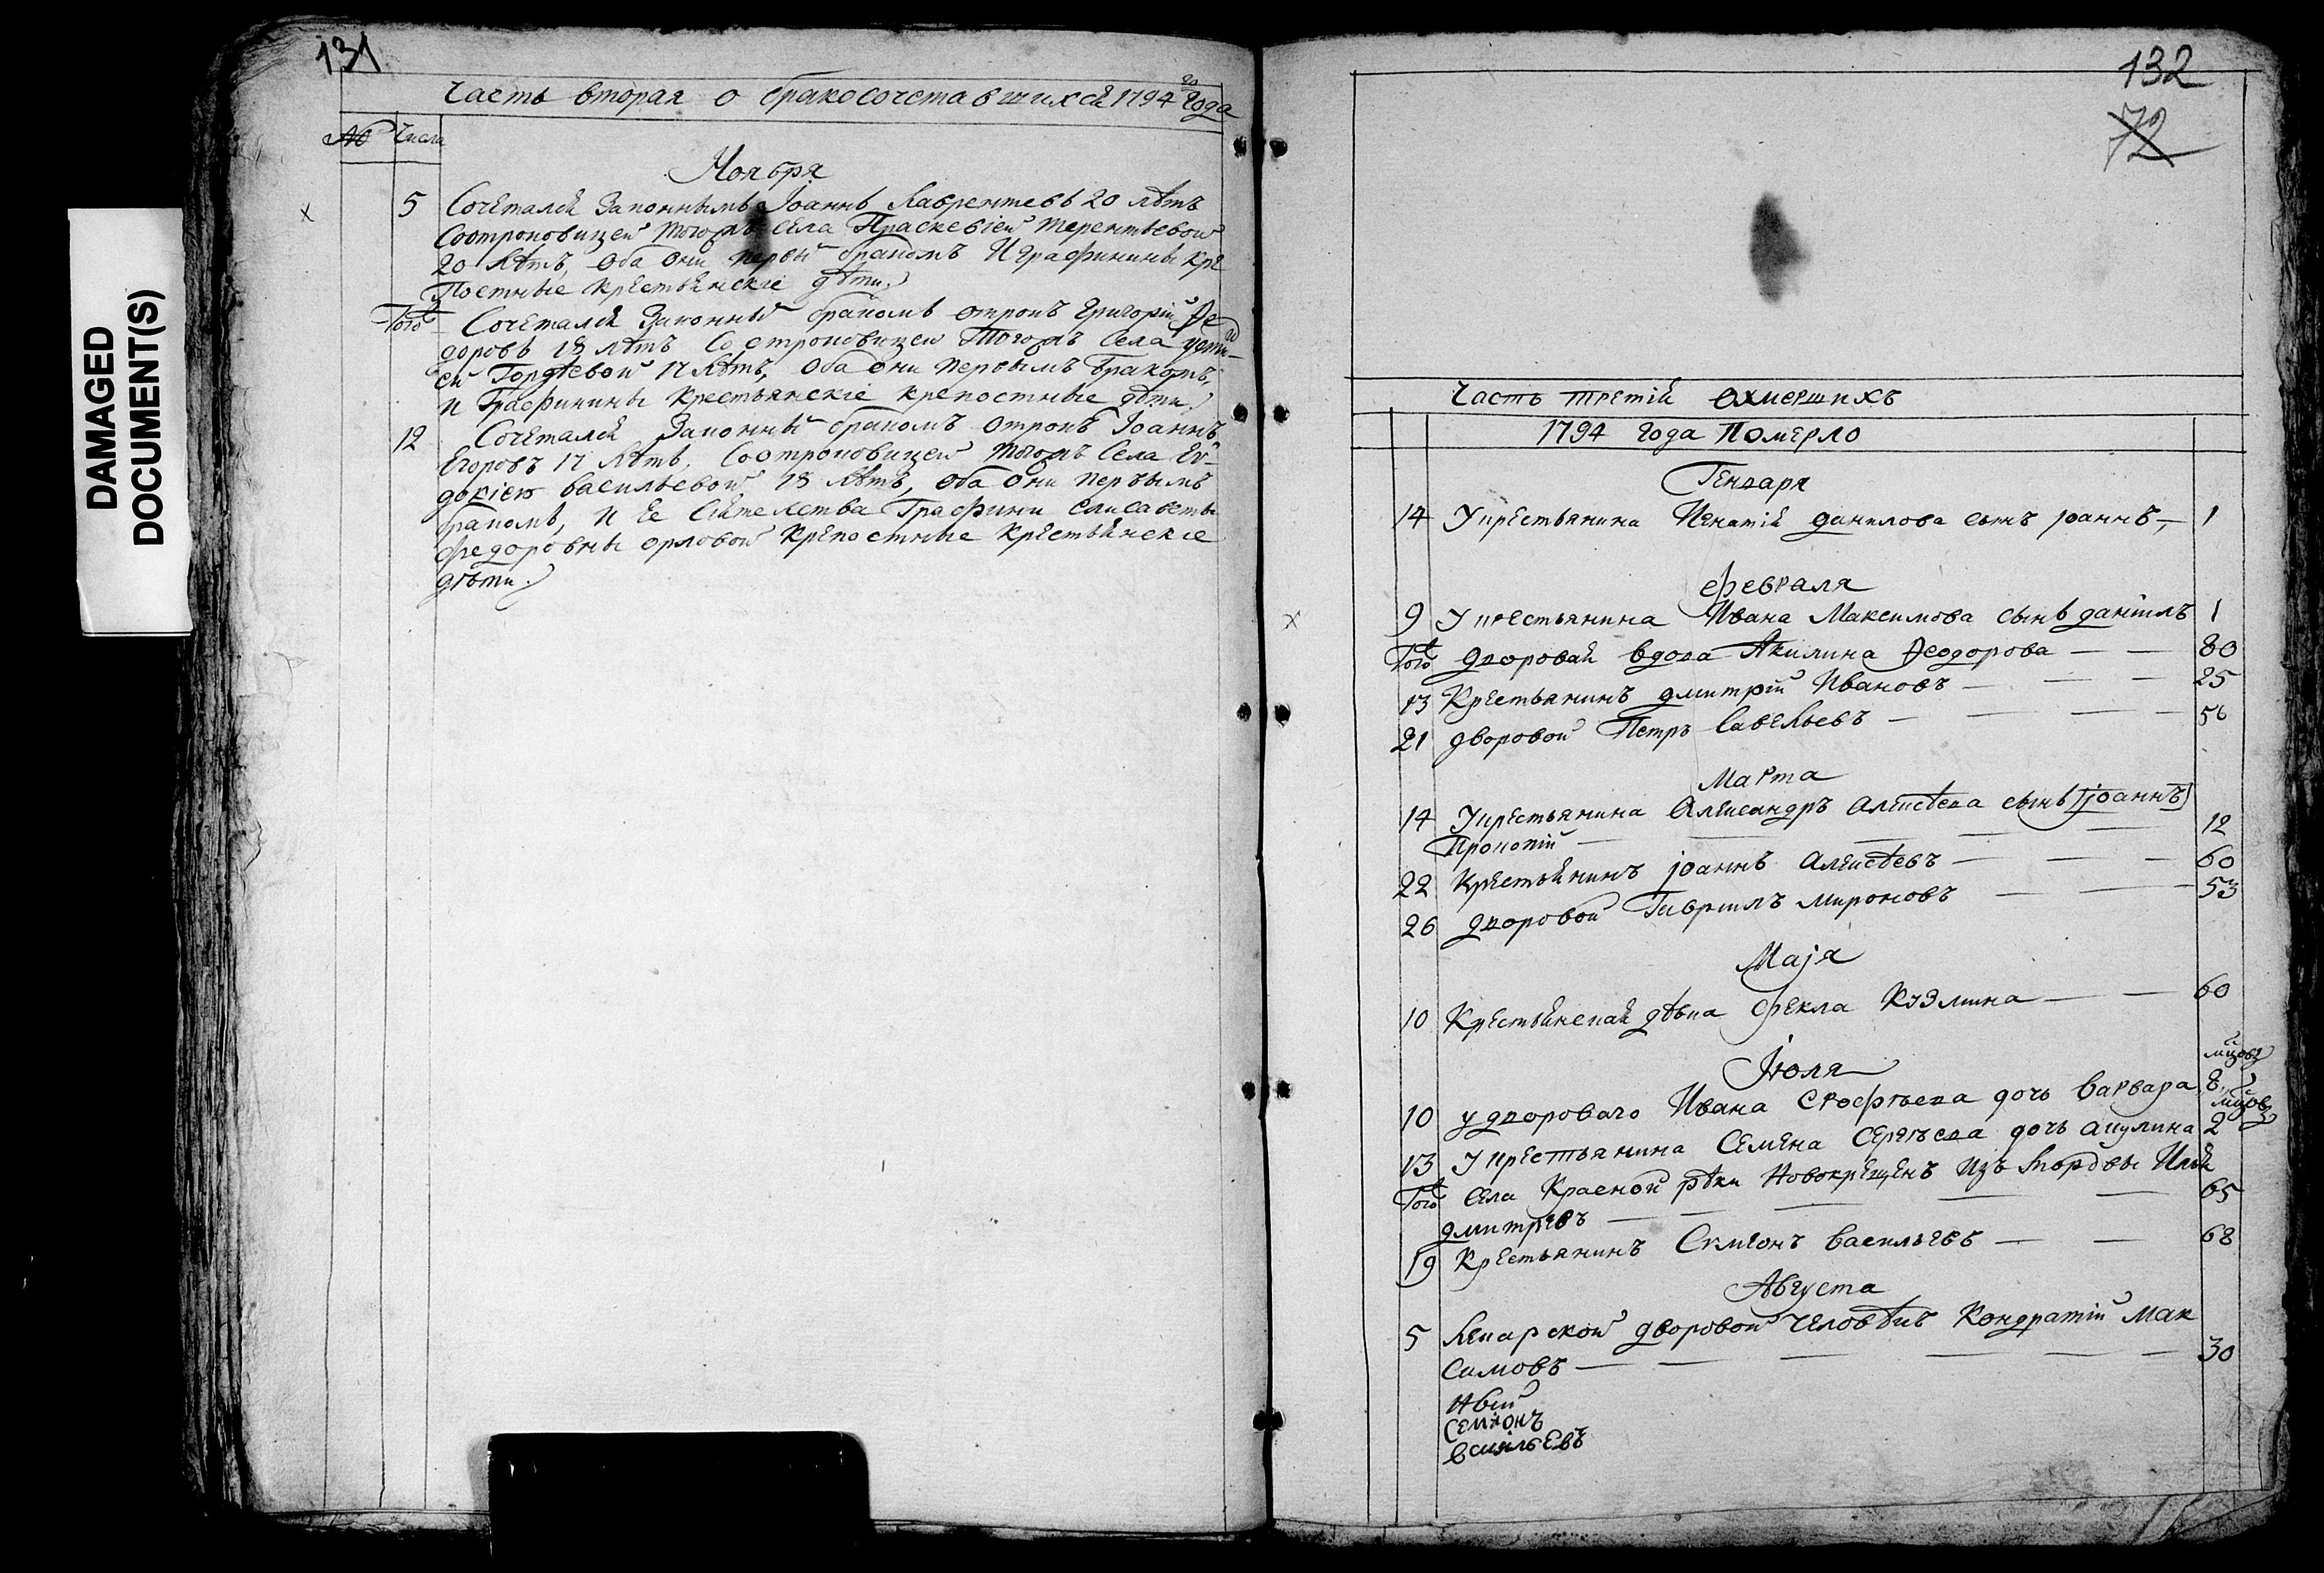 DAMAGED
DOCUMENT(S)
131
Часть вторая о бракосочетавшихся 1794 го Года
№ Числа
Ноября
5 Сочетался Законнымъ Іоаннъ Лаврентевъ 20 лѣтъ
Соотроковицей тогожъ села Праскевіей терентьевой
20 лѣтъ, оба они первы бракомъ И графинины Кре
Постные крестьянскіе дѣти.
Того Сочетался Законны бракомъ отрокъ Григорій Ѳе
доровъ 18 лѣтъ Со отроковицей Тогожъ Села
ей Гордѣевой 17 лѣтъ, Оба они первымъ бракомъ,
и Графинины Крестьянскіе крепостные дѣти
12 Сочетался Законны бракомъ отрокъ Іоаннъ
Егоровъ 17 лѣтъ, Соотроковицей тогожъ Села Ев-
докіею васильевой 18 лѣтъ, оба они первымъ
бракомъ, и Ее Сіятелства Графини елисаветы
федоровны орловой Крепостные Крестьянскіе
дѣти.
132
72
Часть третія Ѳхмершихъ
1794 года Померло
Генваря
14 У крестьянина Игнатія данилова сынъ іоаннъ 1
февраля
9 У крестьянина Ивана Максимова сынъ даніилъ 1
Того дворовая вдова Акилина Ѳеодорова 80
13 Крестьянинъ дмитрій Ивановъ 25
21 дворовой Петръ Савельевъ 56
Марта
14 У крестьянина Александръ алексѣева сынъ іоаннъ
Прокопій 12
22 Крестьянинъ іоаннъ алексѣевъ 60
26 дворовой Гавриилъ мироновъ 53
Маја
10 Крестьянская дѣвка Фекла Кузмина 60
Іюля
10 у двороваго Ивана Ерофѣева дочь варвара 8
13 У крестьянина Семена Сергѣева дочь акулина 2
Того села Красной рѣки Новокрещенъ Изъ мордвы Илья
дмитревъ 65
19 Крестьянинъ Симеонъ васильевъ 68
Августа
5 дворовой человѣкъ Кондратій мак
симовъ 30
Семіонъ
Васильевъ